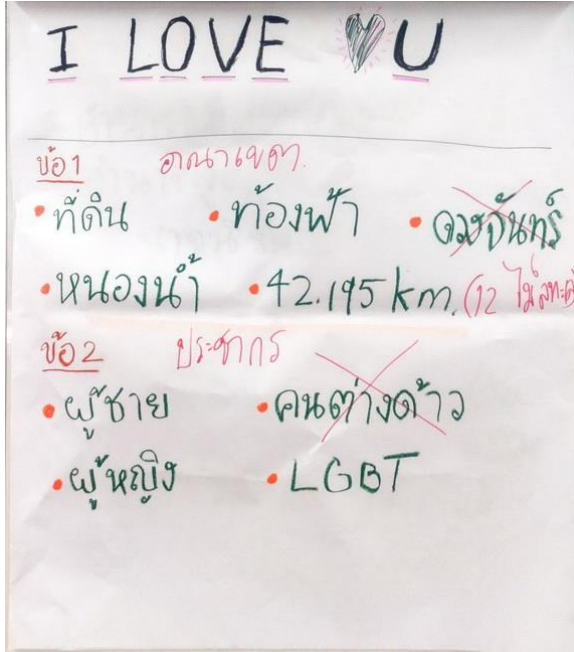 I LOVE U
ข้อ1 อาณาเขต.
•ที่ดิน •ท้องฟ้า •ดวงจันทร์
•หนองน้ำ •42.195 km. (12 ไม่
ข้อ2 ประชากร
•ผู้ชาย •คนต่างด้าว
•ผู้หญิง •LGBT